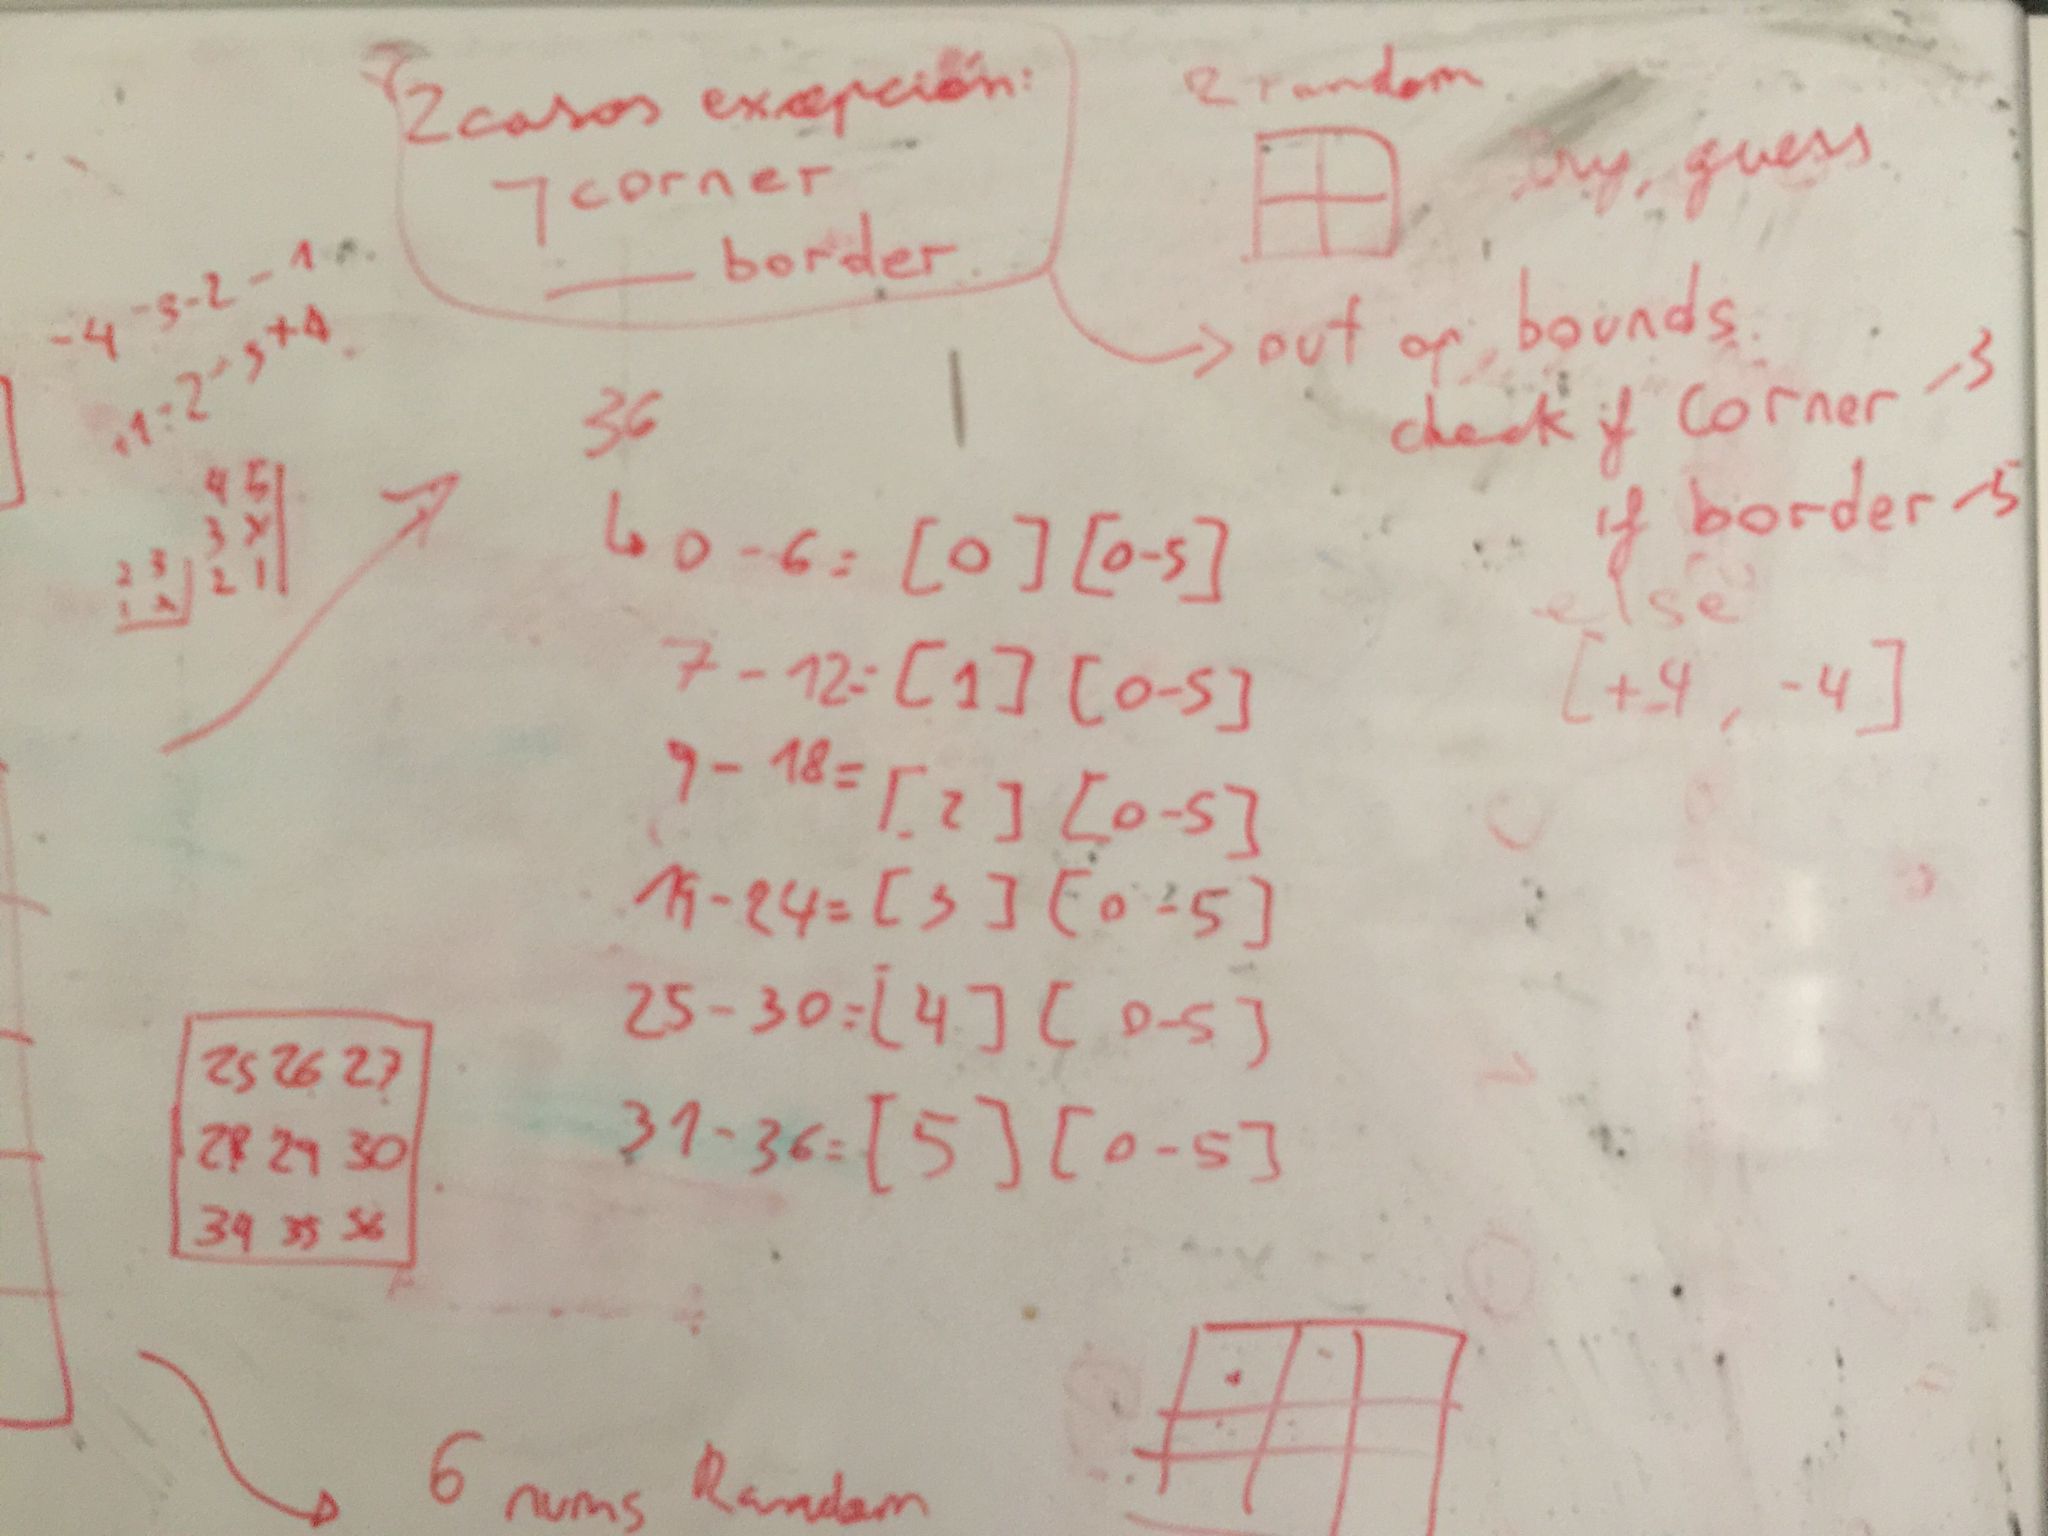 2 casos excepción:
corner
border
2 random
guess
out of bounds
check if corner 3
if border 5
else
[+4, -4]
-4 -3 -2 -1
+1 -2 -3 +4
4 5
3 x
2 1
2 3
1 x
36
0 - 6 = [0] [0-5]
7 - 12 = [1] [0-5]
9 - 18 = [2] [0-5]
19 - 24 = [3] [0-5]
25 - 30 = [4] [0-5]
31 - 36 = [5] [0-5]
25 26 27
28 29 30
34 35 36
6 nums Random